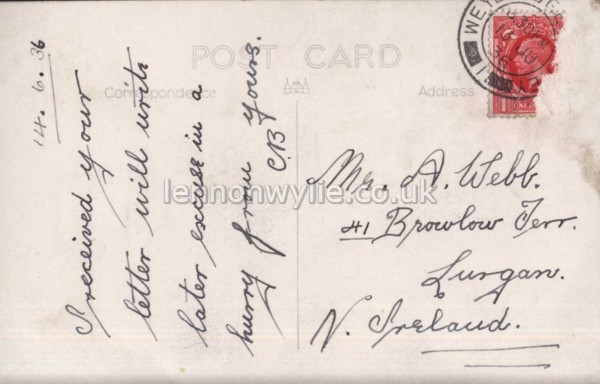 POST CARD
Correspondence
Address
14.6.36
I received your
letter will write
later excuse in a
hurry from yours.
C.B
Mr. A. Webb.
41 Browlow Terr.
Lurgan.
N. Ireland.
lennonwylie.co.uk